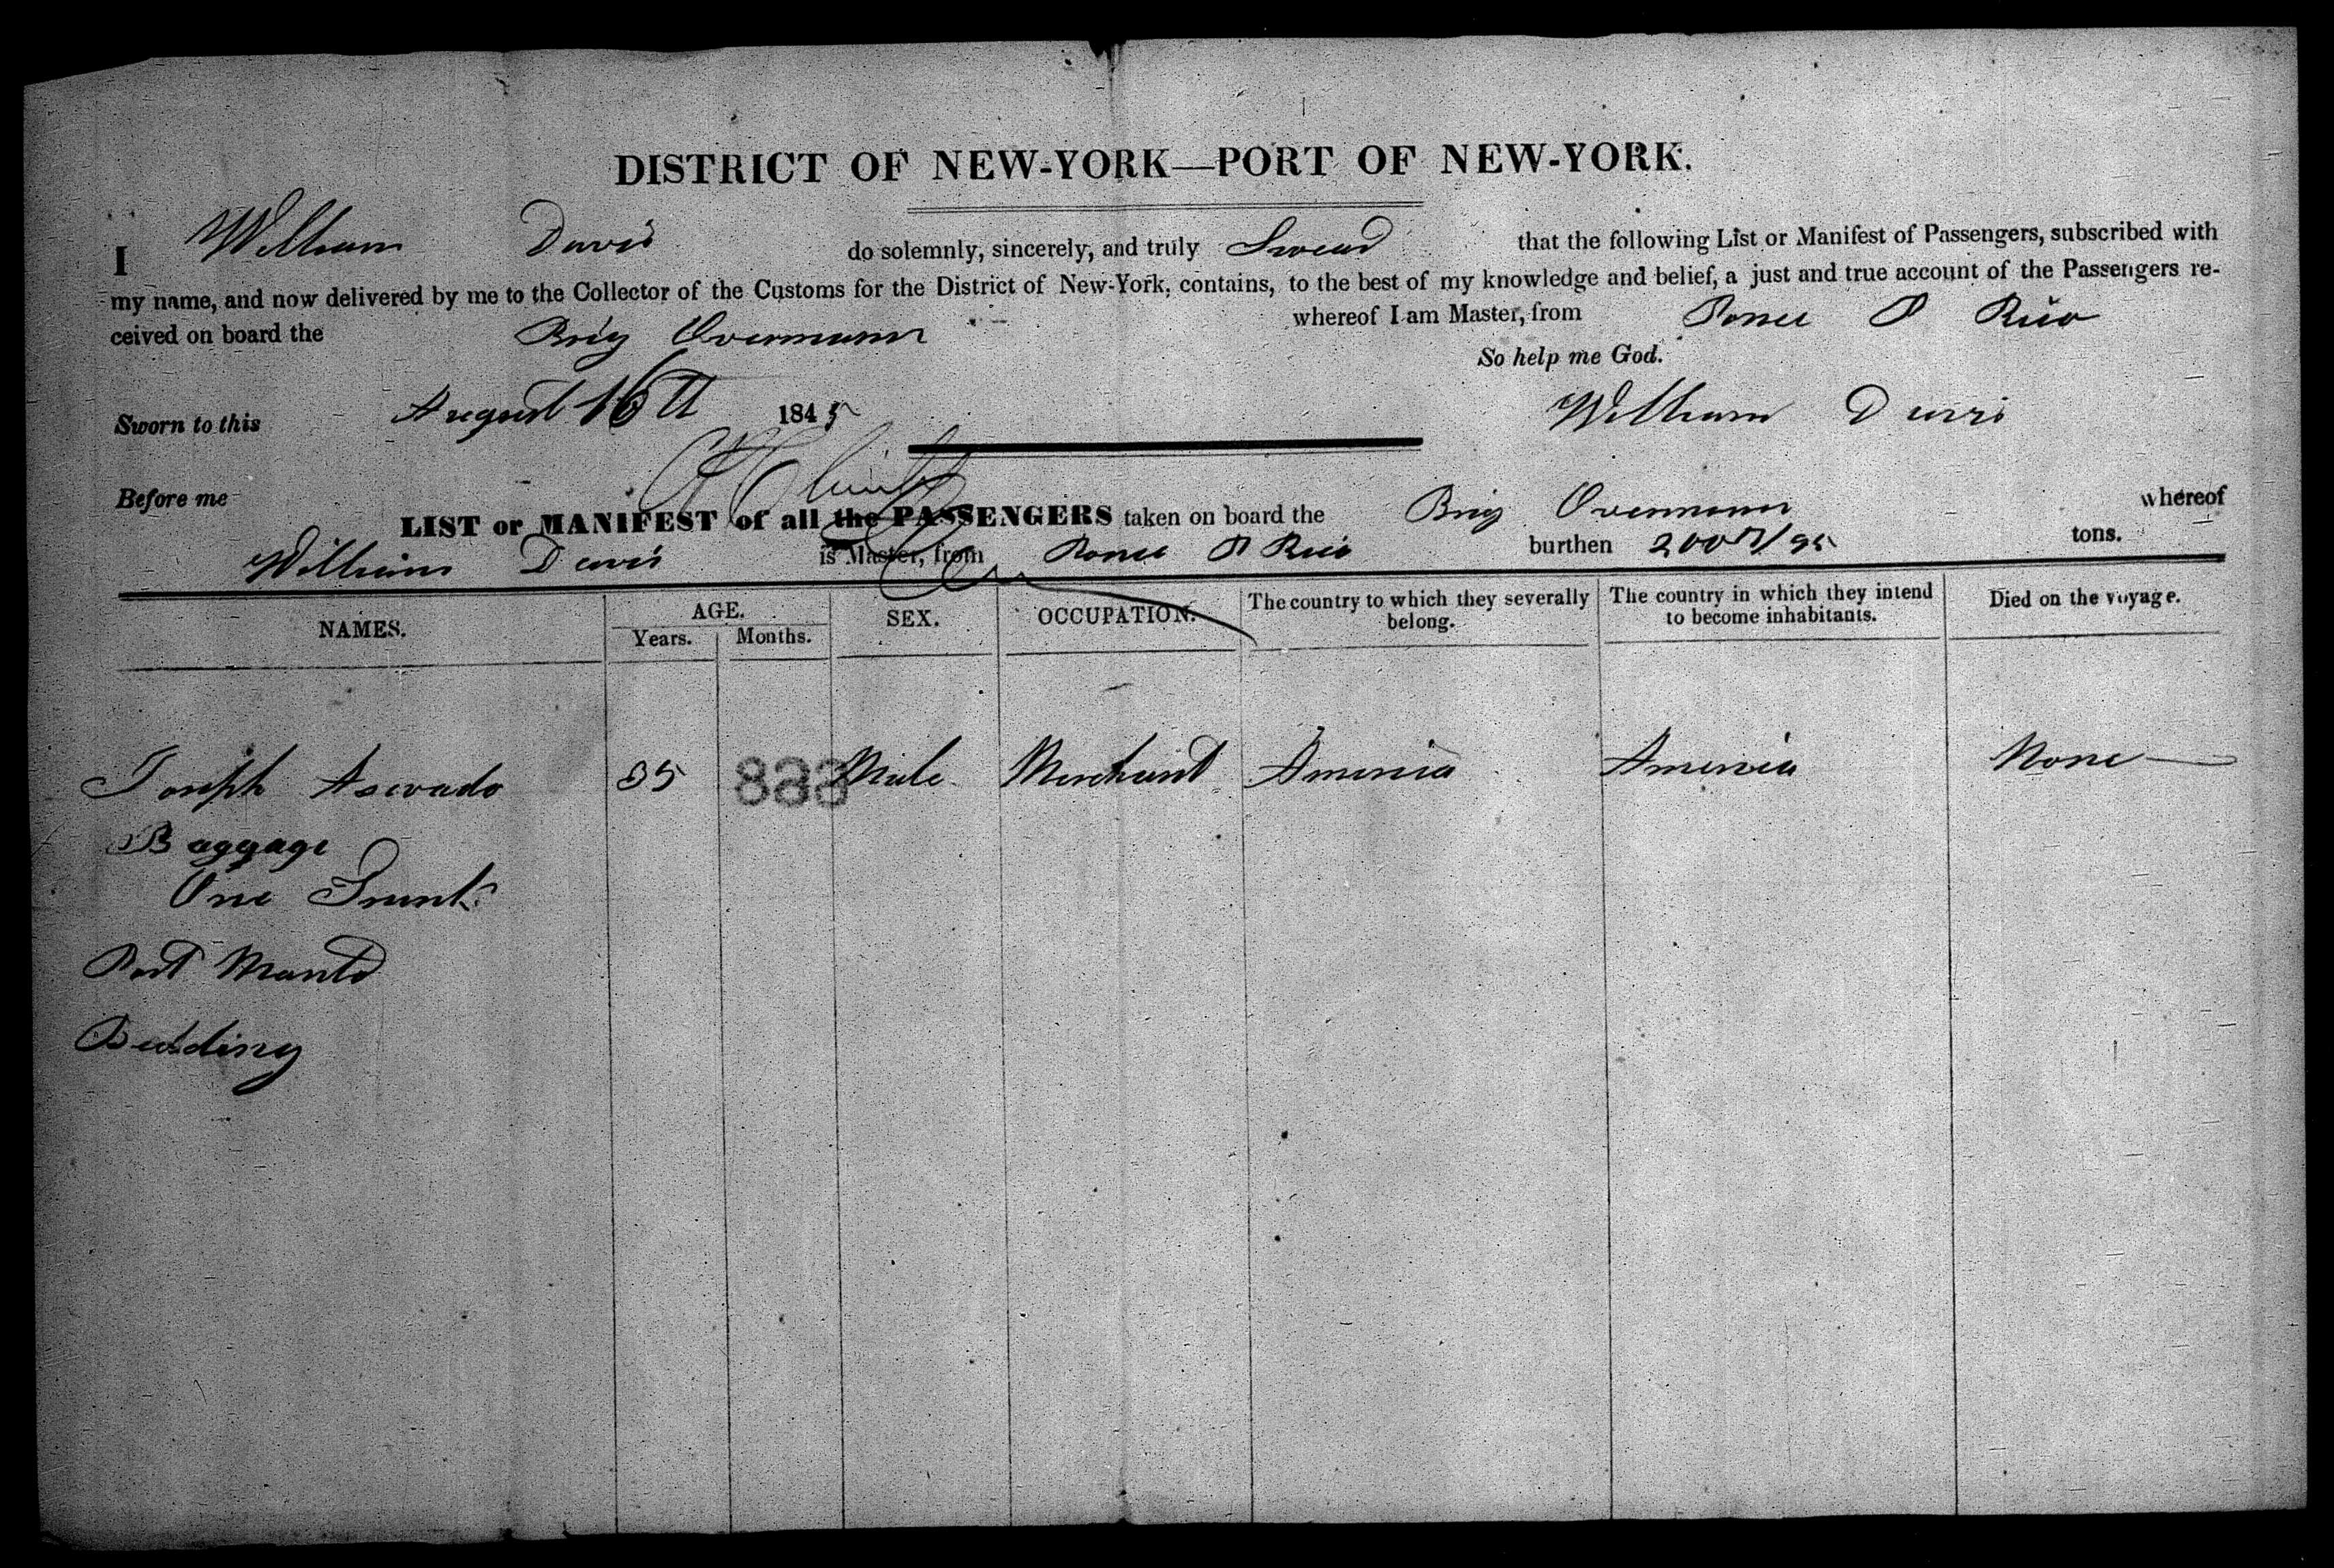 DISTRICT OF NEW-YORK—PORT OF NEW-YORK.
I William Davis do solemnly, sincerely, and truly Swear that the following List or Manifest of Passengers, subscribed with
my name, and now delivered by me to the Collector of the Customs for the District of New-York, contains, to the best of my knowledge and belief, a just and true account of the Passengers re-
ceived on board the Brig Overmann whereof I am Master, from Ponce P Rico
So help me God.
Sworn to this August 16th 1845 William Davis
Before me
LIST or MANIFEST of all the PASSENGERS taken on board the Brig Overmann whereof
William Davis is Master, from Ponce P Rico burthen 200 /95 tons.
NAMES. AGE. SEX. OCCUPATION. The country to which they severally belong. The country in which they intend to become inhabitants. Died on the voyage.
Years. Months.
Joseph 35 888 Male Merchant America America None
Baggage
One Trunk
Port Manto
Bedding